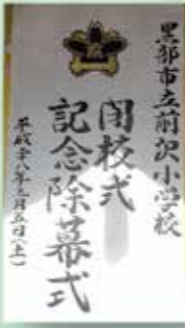 黒部市立前沢小学校
閉校式
記念除幕式
平成二十八年三月五日(土)